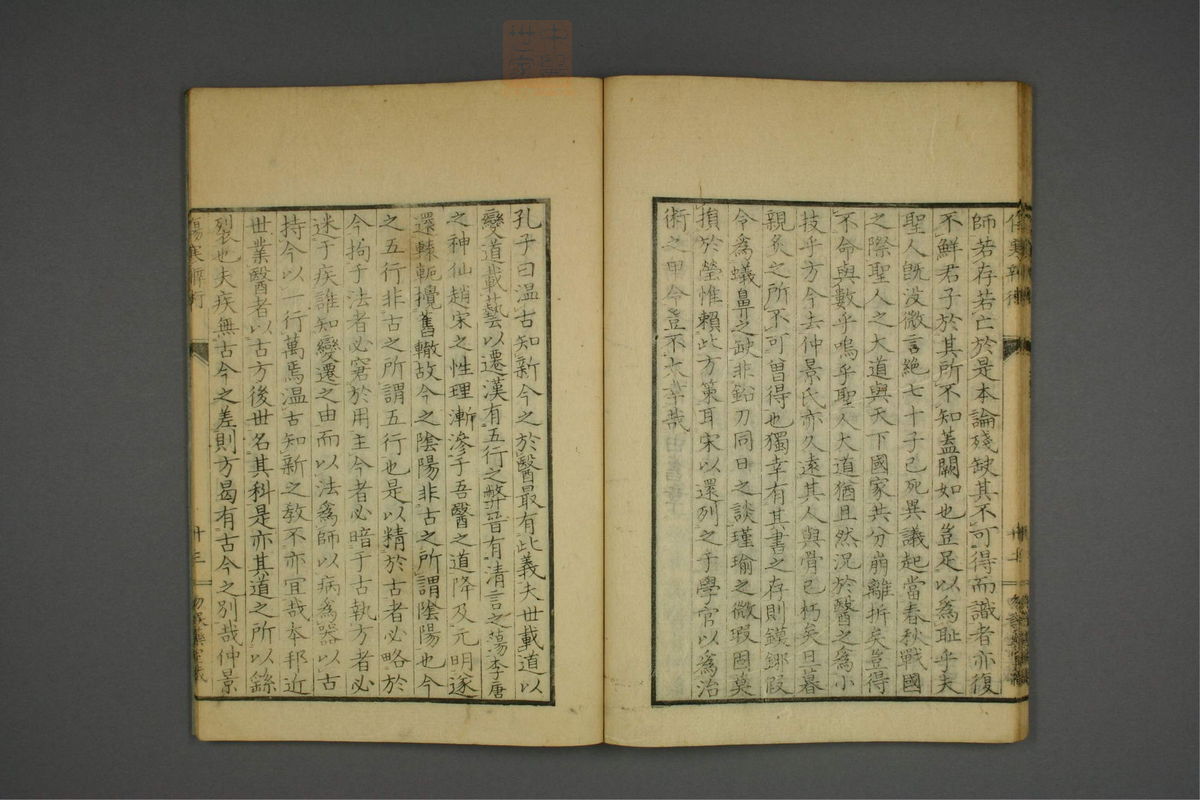 師若存若亡於是本論殘缺其不可得而識者亦復
不鮮君子於其所不知蓋闕如也豈足以為恥乎夫
聖人既没微言絶七十子已死異議起當春秋戰國
之際聖人之大道與天下國家共分崩離折矣豈得
不命與數乎嗚呼聖人大道猶且然況於醫之為小
技乎方今去仲景氏亦久遠其人與骨已朽矣旦暮
親炙之所不可曽得也獨幸有其書之存則鏌鋣假
令為蟻鼻之缺非鉛刀同日之談瑾瑜之微瑕固莫
損於瑩惟賴此方策耳宋以還列之于學官以為治
術之甲令豈不大幸哉
孔子曰温古知新今之於醫最有此義夫世載道以
變道載藝以遷漢有五行之弊晉有清言之蕩李唐
之神仙趙宋之性理漸滲于吾醫之道降及元明遂
還轅軛攪舊轍故今之陰陽非古之所謂陰陽也今
之五行非古之所謂五行也是以精於古者必略於
今拘于法者必窘於用主今者必暗于古執方者必
迷于疾誰知變遷之由而以法為師以病為器以古
持今以一行萬焉温古知新之教不亦宜哉本邦近
世業醫者以古方後世名其科是亦其道之所以
裂也夫疾無古今之差則方曷有古今之別哉仲景
傷寒